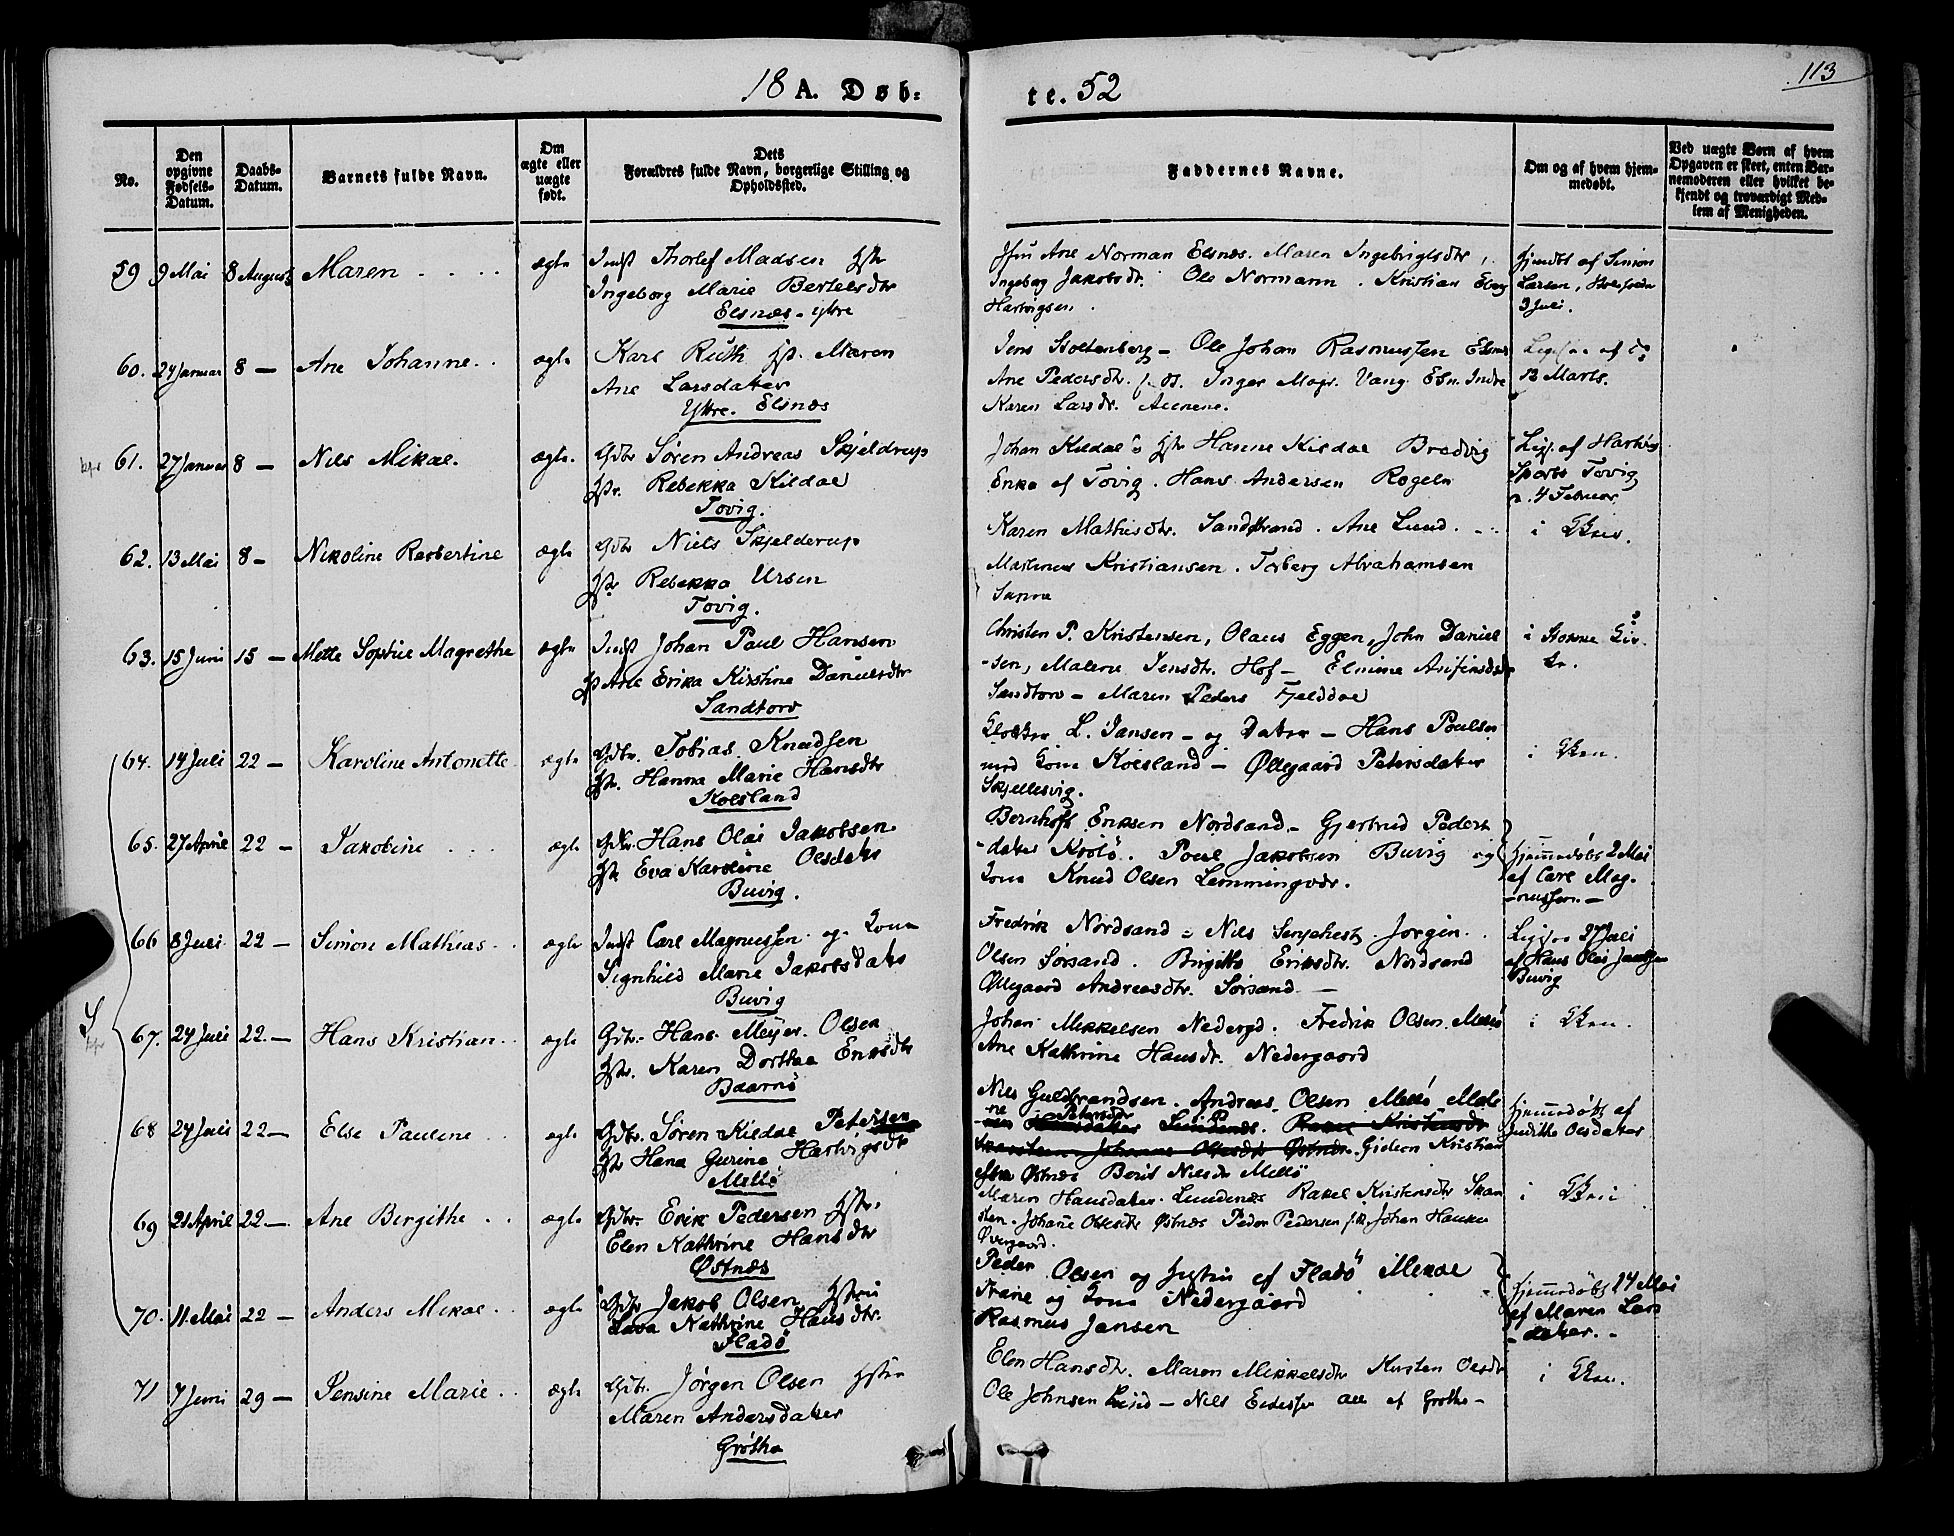 18 A. Døb-
te. 52
113
No.
Den opgivne Fødsels-Datum.
Daabs-Datum.
Barnets fulde Navn.
Om ægte eller uægte født.
Dets Forældres fulde Navn, borgerlige Stilling og Opholdssted.
Faddernes Navne.
Om og af hvem hjemmedøbt.
Ved uægte Børn af hvem Opgaven er skeet, enten Barnemoderen eller hvilket bekjendt og troværdigt Medlem af Menigheden.
59 9 Mai 8 August Maren ægte
Indst Thorlef Madsen Hst
Ingeborg Marie Bertelsdtr
Elsnæs - ytre
Ane Norman Elsnes. Maren Ingebrigtsdtr,
Ingeborg Jakobsdt. Ole Normann. Kristian Eberg
Hartvigsen.
hjemdbt af Simon
Larsen,
3 Juli.
60. 24 Januar 8 — Ane Johanne ægte
Karl Ruth Hst. Maren
Ane Larsdater
Yttre. Elsnæs
Jens Stoltenberg — Ole Johan Rasmussen Elsnes
Ane Pedersdtr. Inger Magr. Vang. Elsn. Indre
Karen Larsdtr.
12 Marts.
61. 27 Januar 8 — Nils Mikal. ægte.
Gdbr Søren Andreas Skjeldrup
Hst. Rebekka Kildal
Tovig.
Johan Kildal Hst Hanne Kildal Bredvig
Enke af Tovig. Hans Andersen Rogeln
Lig. af Hartvig
Tovig
4 Februar
62. 13 Mai 8 — Nikoline Rasbertine ægte
Gdbr Niels Skjelderup
Hst Rebekka Ursin
Tovig.
Karen Mathisdtr. Sandstrand. Ane Lund.
Martinus Kristiansen. Torberg Abrahamsen
i Kken.
63. 15 Juni 15 — Mette Sophie Magrethe ægte
Indst Johan Paul Hansen
Hst Ane Erika Kirstine Danielsdtr
Sandtorv
Christen P. Kristensen, Olaus Eggen, John Daniel
-sen, Malene Jensdtr. Hof — Elmine
Sandtorv — Maren Peders Fjelddal
i
64. 14 Juli 22 — Karoline Antonette ægte
Gdbr. Tobias Knudsen
Hst. Hanna Marie Hansdtr
Kolsland
Klokker L. Jansen — og Dater — Hans Poulsen
med Kone Kolsland — Øllegaard Petersdater
Skjellesvig.
i Kken.
65. 27 April 22 — Jakobine ægte
Gdbr. Hans Olai Jakobsen
Hst Eva Karoline Olsdater
Buvig.
Bernhoft Eriksen Nordsand — Gjertrud Peders
-dater Kvolø. Poul Jakobsen Buvig og
Kone Knud Olsen Lemmingvær.
hjemmedøbt 2 Mai
af Carl Mag-
-nussen. —
66 8 Juli 22 — Simon Mathias ægte
Indst Carl Magnussen og Kone
Signhild Marie Jakobsdater
Buvig
Fredrik Nordsand — Nils Jørgen
Olsen Sørsand. Birgitte Eriksdtr. Nordsand
Øllegaard Andreasdtr. Sørsand —
27 Juli
af Hans Olai
Buvig
67. 24 Juli 22. — Hans Kristian ægte
Gdbr. Hans Meyer Olsen
Hst. Karen Dorthea Eriksdtr
Baarnø
Johan Mikkelsen Nedergd. Fredrik Olsen Mellø
Ane Kathrine Hansdtr. Nedergaard
i Kken.
68 24 Juli 22 — Else Pauline ægte
Gdbr. Søren Kildal Petersen
Hst Hana Gurine Hartvigsdtr
Mellø
Nils Guldbrandsen. Andreas Olsen Mellø Male
-ne Petersdtr Lundenes.
Gideon Kristian
Østnæs Berit Nilsdtr Mellø
hjemmedøbt af
Judithe Olsdater
69 21 April 22 — Ane Birgithe ægte
Gdbr. Erik Pedersen Hst.
Elen Kathrine Hansdtr
Østnæs
Maren Hansdater Lundenæs Rakel Kristensdtr Skan
sten. Johane Olsdtr Østnæs Peder Pedersen Johan
Øvergaard.
i Kken
70. 11 Mai 22 — Anders Mikal ægte
Gdbr Jakob Olsen Hstru
Kathrine Hansdtr.
Fladø
Peder Olsen og Hustru af Fladø Mikal
og Kone Nedergaard
Rasmus Jansen
hjemmedøbt 14 Mai
af Maren Lars
-dater. -
71 7 Juni 29 — Jensine Marie ægte
Gdbr. Jørgen Olsen Hstru
Maren Andersdater
Grøtha
Elen Hansdtr. Maren Mikkelsdtr Kirsten Olsdtr
Ole Johnsen — Nils alle af Grøtha -
i Kken.